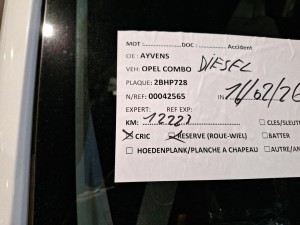 MOT:...............DOC:............. Accident
CIE: AYVENS
VEH: OPEL COMBO DIESEL
PLAQUE: 2BHP728
N/REF: 00042565 IN 16/02/26
EXPERT: REF EXP:
KM: 12223 ☐ CLES/SLEUT
☒ CRIC ☒ RESERVE (ROUE-WIEL) ☐ BATTER
☐ HOEDENPLANK/PLANCHE A CHAPEAU ☐ AUTRE/AN